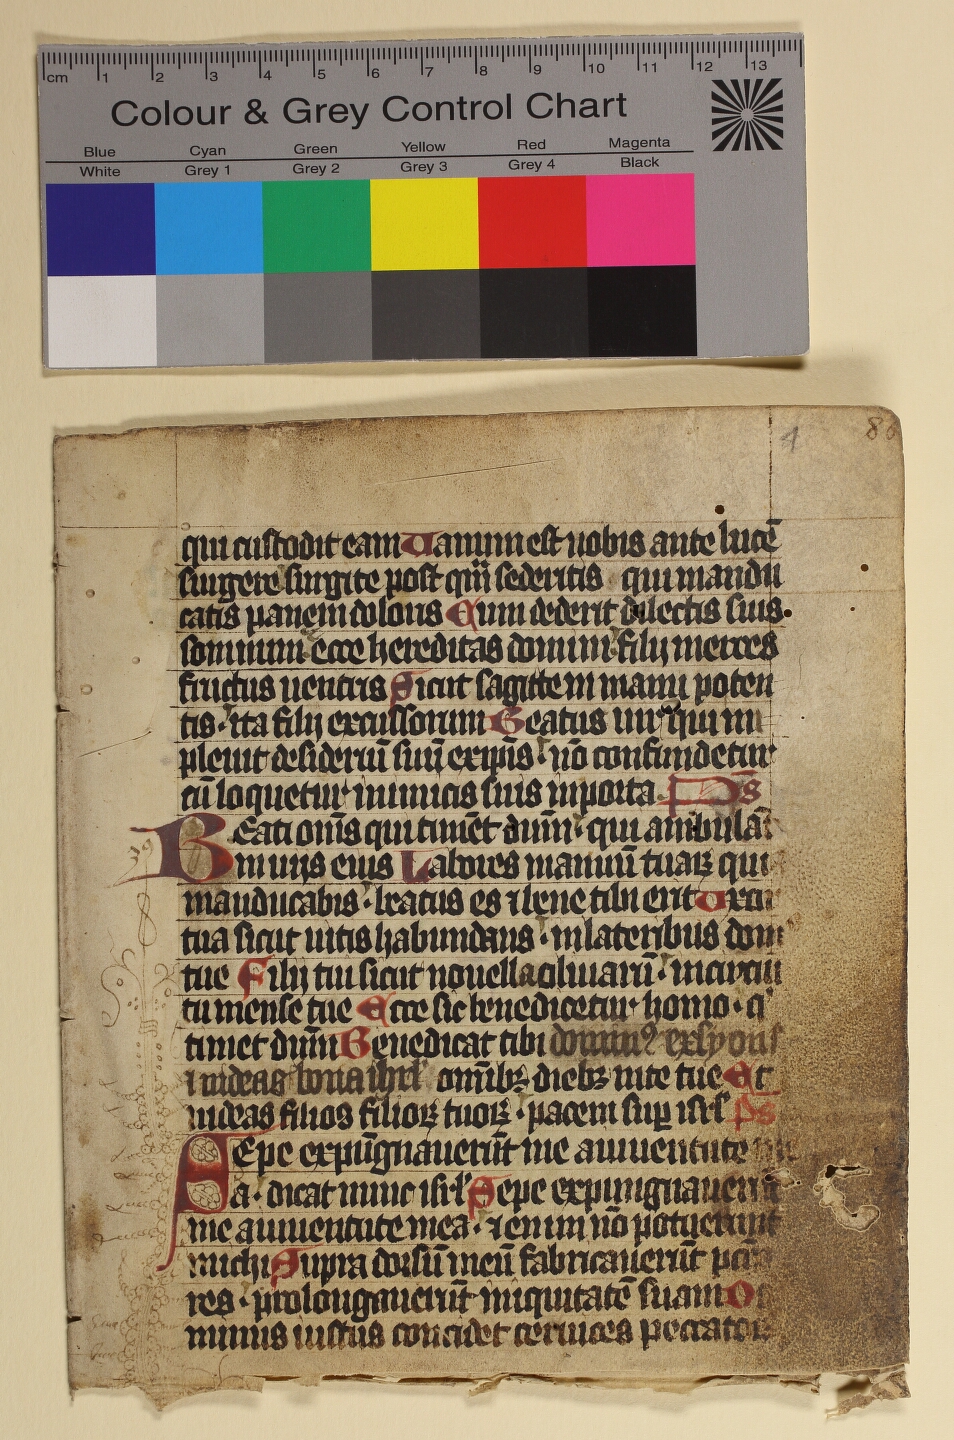 cm 1 2 3 4 5 6 7 8 9 10 11 12 13
Colour & Grey Control Chart
Blue Cyan Green Yellow Red Magenta
White Grey 1 Grey 2 Grey 3 Grey 4 Black
4 86
qui custodit eam Vanum est uobis ante lucē
surgere surgite post qm̄ sederitis qui mandu
catis panem doloris Cum dederit dilectis suis
somnum ecce hereditas domini filij merces
fructus uentris Sicut sagitte in manu poten
tis ita filij excussorum Beatus uir qui im
pleuit desideriū suū ex ip̄is nō confundetur
cū loquetur inimicis suis in porta P̄s
Beati om̄s qui timēt dūm qui ambulāt
in uijs eius Labores manuū tuaꝝ quia
manducabis beatus es ⁊ bene tibi erit Uxor
tua sicut uitis habundans in lateribus dom
tue Filij tui sicut nouella oliuarū in circui
tu mense tue Ecce sic benedicetur homo q̄
timet dūm Benedicat tibi dominꝰ ex syon
⁊ uideas bona ihrl̄ omībꝫ diebꝫ uite tue Et
uideas filios filioꝝ tuoꝝ pacem sup̄ isrl̄ Ps
Sepe expūgnauerūt me a iuuentute
a dicat nunc isrl̄ Sepe expungnauerūt
me a iuuentute mea ⁊ enim nō potuerunt
michi Supra dorsū meū fabricauerūt
res prolongauerūt iniquitatē suam Do
minus iustus concidet ceruices peccatoꝝ